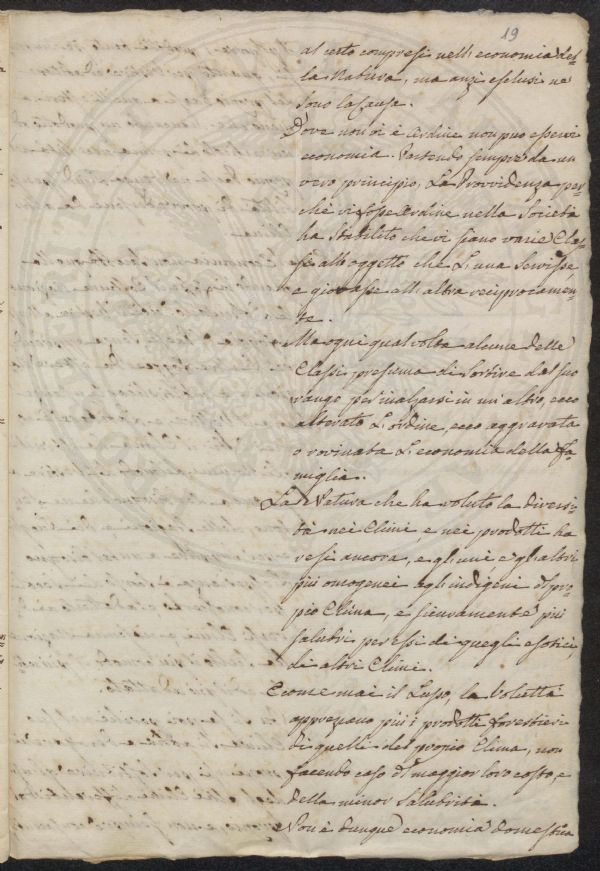 19
al certo compresi nell'economia del-
la Natura, ma anzi esclusi ne
sono la Cause.
Dove non vi è Ordine non puo esservi
economia. Partendo sempre da un
vero principio, La Providenza per-
chè vi fosse Ordine nella Società
ha stabilito che vi siano varie Clas-
si all'oggetto che L'una servisse
e giovasse all'altra reciprocamen-
te.
Ma ogni qual volta alcune delle
Classi presuma di sortire dal suo
rango per inalzarsi in un'altro, ecco
alterato L'ordine, ecco aggravata
o rovinata L'economia della fa-
miglia.
La Natura che ha voluto la diversi-
tà nei Climi e nei prodotti ha
resi ancora, e gli uni e gli altri
più omogenei agli indigeni di pro-
pio Clima, e sicuramente più
salubri per essi di quegli esotici,
di altri Climi.
E come mai il Lusso, la Voluttà
apprezzano più i prodotti forestieri
di quelli del propio Clima, non
facendo caso di maggior loro costo, e
della minor salubrità.
Non è dunque economia domestica